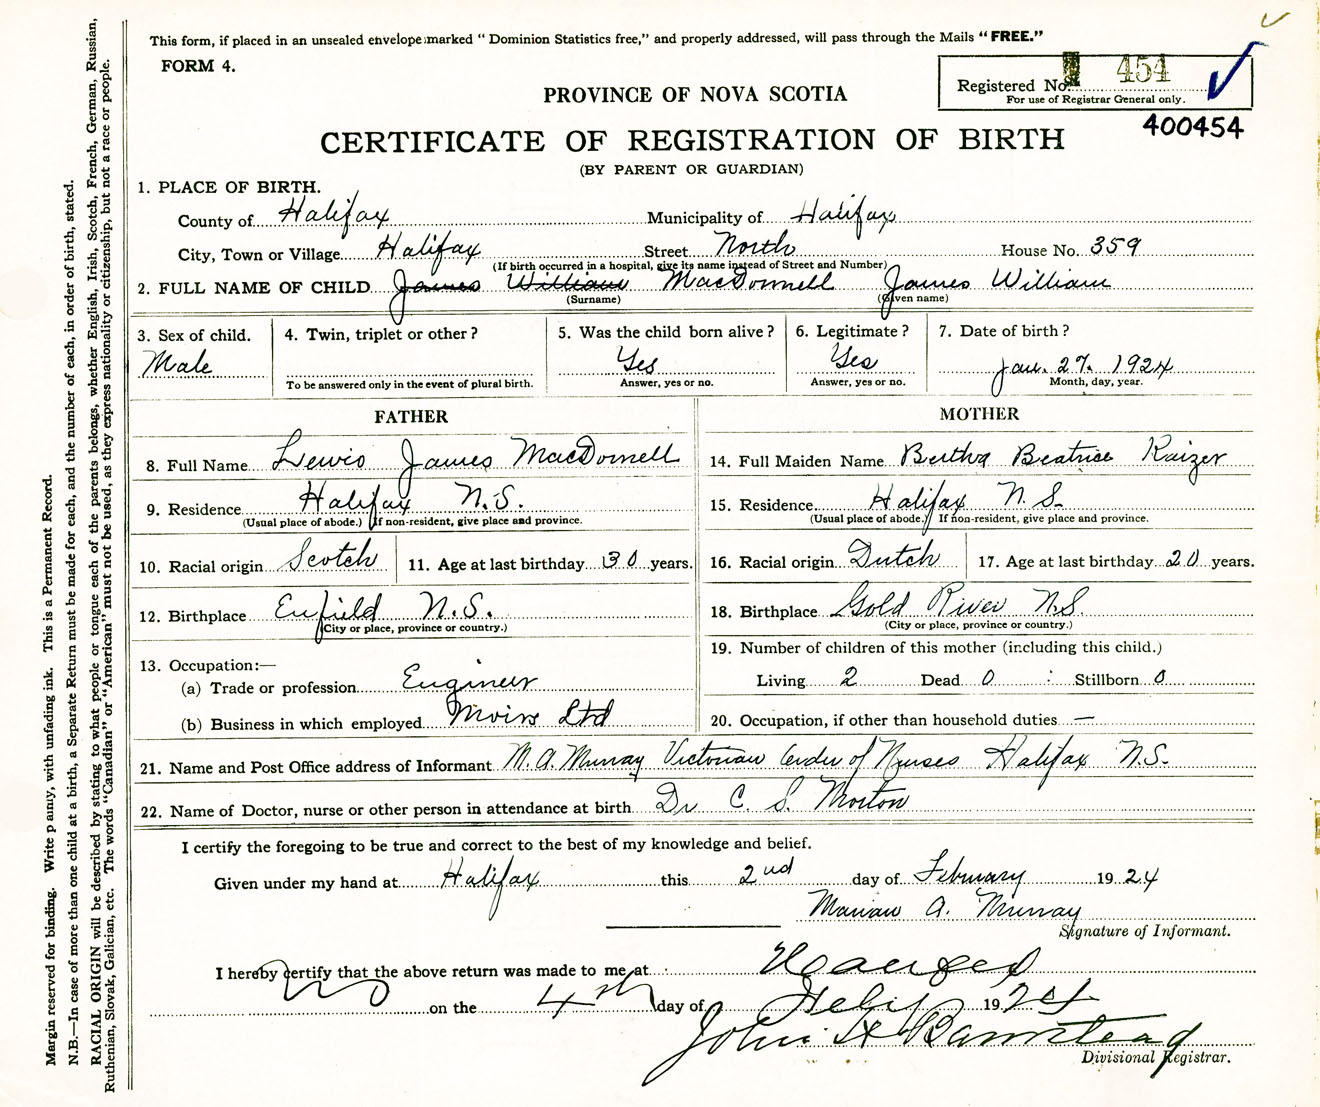 This form, if placed in an unsealed envelope marked " Dominion Statistics free," and properly addressed, will pass through the Mails "FREE."
FORM 4.
Registered No. 454
For use of Registrar General only.
400454
PROVINCE OF NOVA SCOTIA
CERTIFICATE OF REGISTRATION OF BIRTH
(BY PARENT OR GUARDIAN)
1. PLACE OF BIRTH.
County of Halifax Municipality of Halifax
City, Town or Village Halifax Street North House No. 359
(If birth occurred in a hospital, give its name instead of Street and Number)
2. FULL NAME OF CHILD James William MacDonnell James William
(Surname) (Given name)
3. Sex of child. 4. Twin, triplet or other ? 5. Was the child born alive ? 6. Legitimate ? 7. Date of birth ?
Male Yes Yes Jan. 27. 1924
To be answered only in the event of plural birth. Answer, yes or no. Answer, yes or no. Month, day, year.
FATHER
8. Full Name Lewis James MacDonnell
9. Residence Halifax N.S.
(Usual place of abode.) If non-resident, give place and province.
10. Racial origin Scotch 11. Age at last birthday 30 years.
12. Birthplace Enfield N.S.
(City or place, province or country.)
13. Occupation:—
(a) Trade or profession Engineer
(b) Business in which employed Moirs Ltd
MOTHER
14. Full Maiden Name Bertha Beatrice Kaizer
15. Residence Halifax N.S.
(Usual place of abode.) If non-resident, give place and province.
16. Racial origin Dutch 17. Age at last birthday 20 years.
18. Birthplace Gold River N.S.
(City or place, province or country.)
19. Number of children of this mother (including this child.)
Living 2 Dead 0 Stillborn 0
20. Occupation, if other than household duties —
21. Name and Post Office address of Informant M. A. Murray Victorian Order of Nurses Halifax N.S.
22. Name of Doctor, nurse or other person in attendance at birth Dr C. S. Morton
I certify the foregoing to be true and correct to the best of my knowledge and belief.
Given under my hand at Halifax this 2nd day of February 1924
Marian A. Murray
Signature of Informant.
I hereby certify that the above return was made to me at
on the 4th day of Feby 1924
John H Barnstead
Divisional Registrar.
Margin reserved for binding. Write plainly, with unfading ink. This is a Permanent Record.
N.B.—In case of more than one child at a birth, a Separate Return must be made for each, and the number of each, in order of birth, stated.
RACIAL ORIGIN will be described by stating to what people or tongue each of the parents belongs, whether English, Irish, Scotch, French, German, Russian,
Ruthenian, Slovak, Galician, etc. The words "Canadian" or "American" must not be used, as they express nationality or citizenship, but not a race or people.